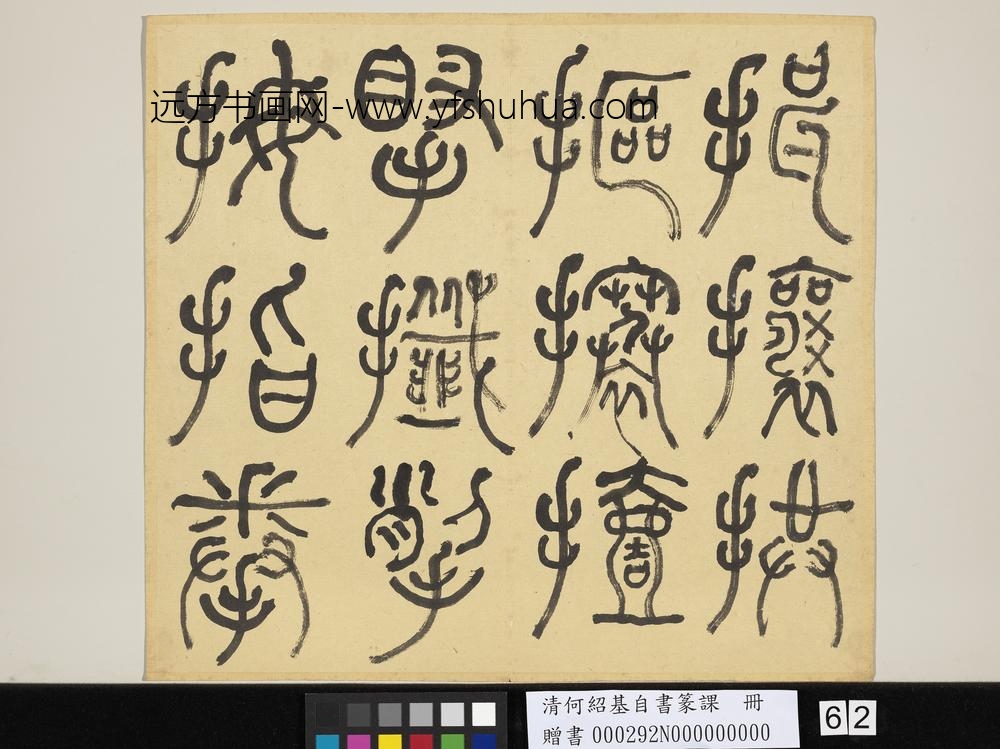 拇指拳
掔攕揱
摳攐撎
揖攘拱
远方书画网-www.yfshuhua.com
清何紹基自書篆課 冊
贈書 000292N000000000
62